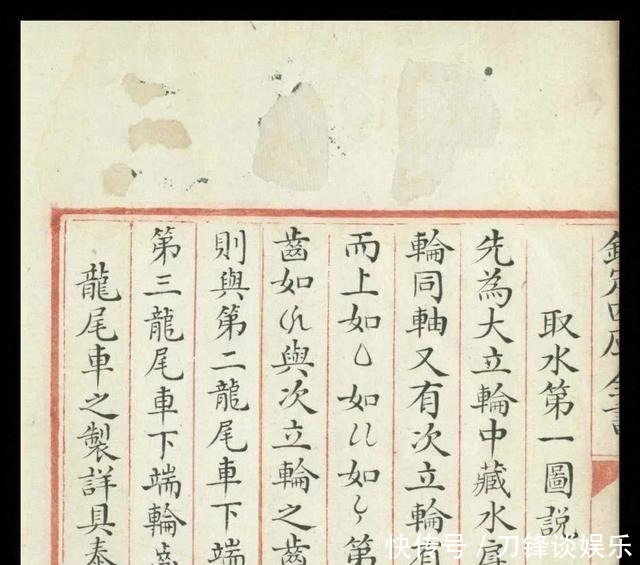 欽定四庫全書
取水第一圖説
先為大立輪中藏水
輪同軸又有次立輪有
而上如如如第
齒如與次立輪之齒
則與第二龍尾車下端
第三龍尾車下端輪齒
龍尾車之製詳具泰
快传号/刀锋谈娱乐